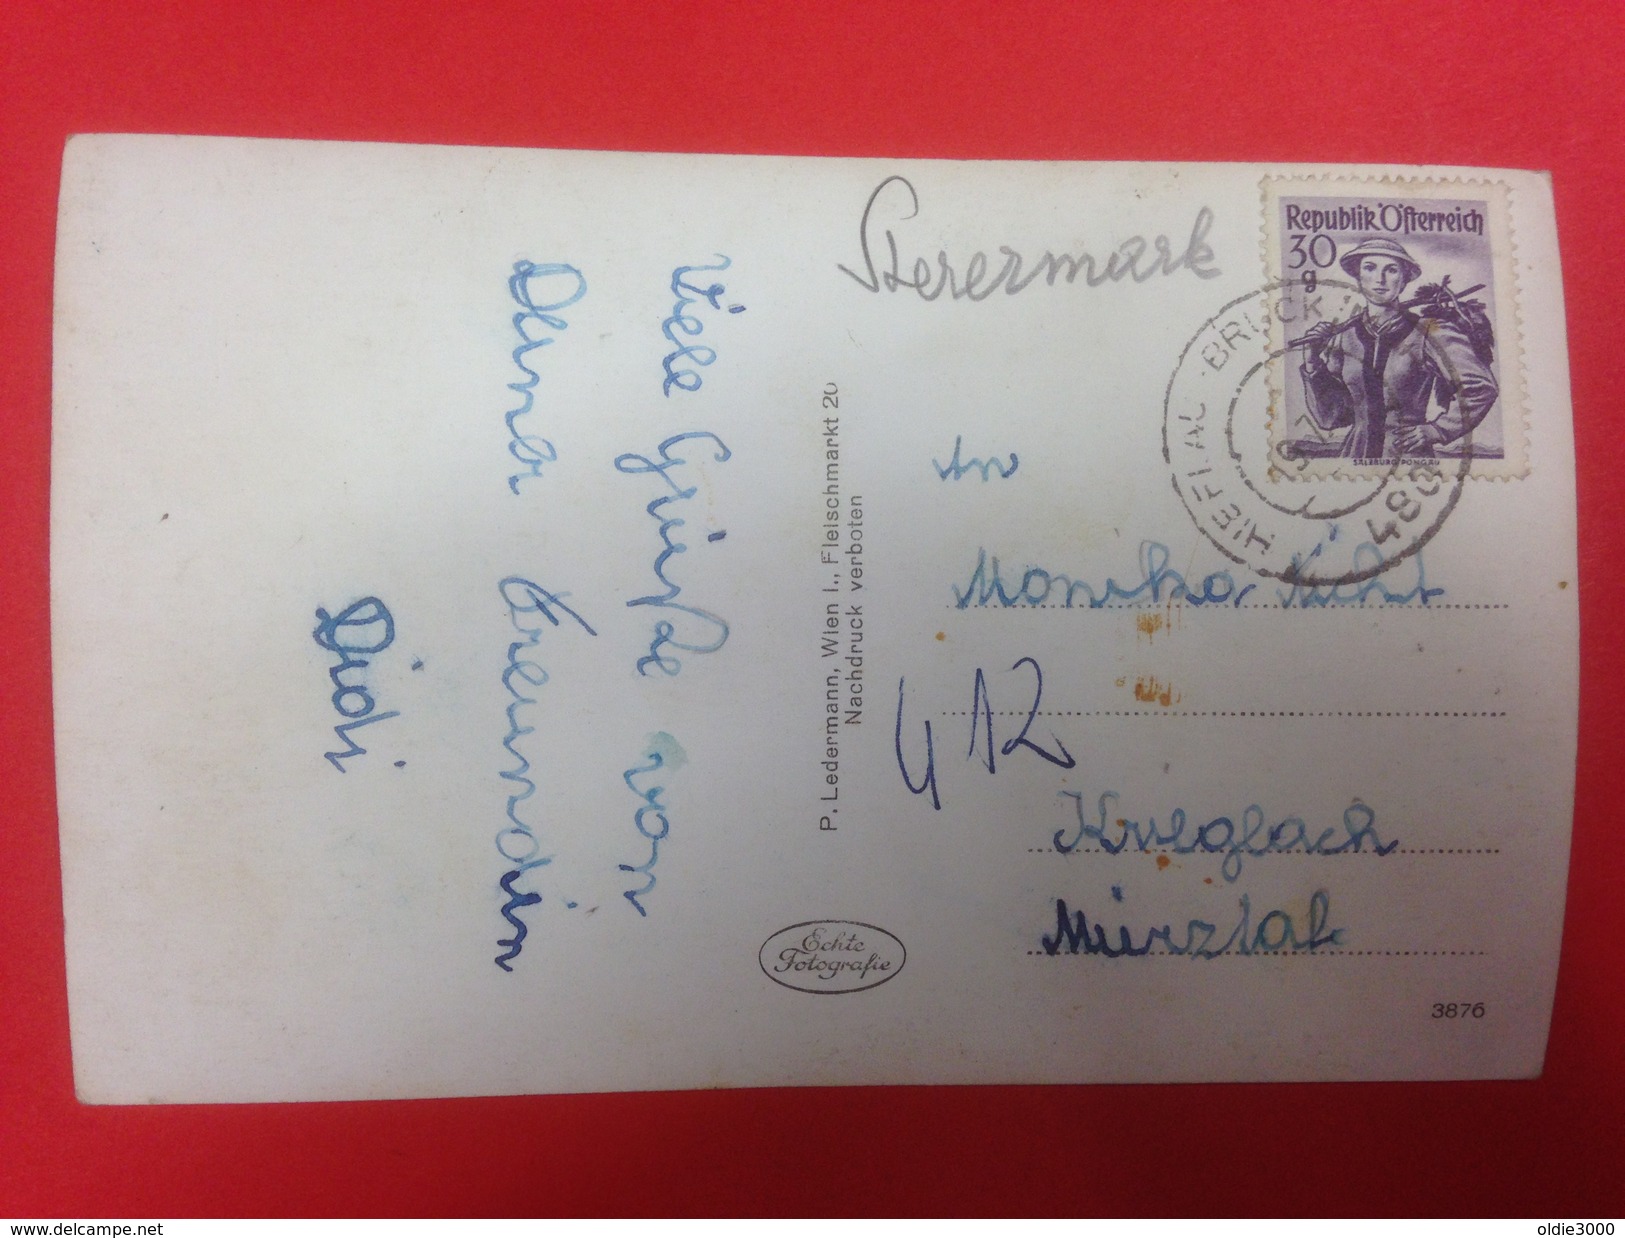 Viele Grüße von
Deiner Freundin
Didi
Steiermark
Republik Österreich
30
g
SALZBURG/PONGAU
HIEFLAU - BRUCK
480
P. Ledermann, Wien I., Fleischmarkt 20
Nachdruck verboten
An
Monika
412
Krieglach
Mürztal
Echte
Fotografie
3876
www.delcampe.net
oldie3000